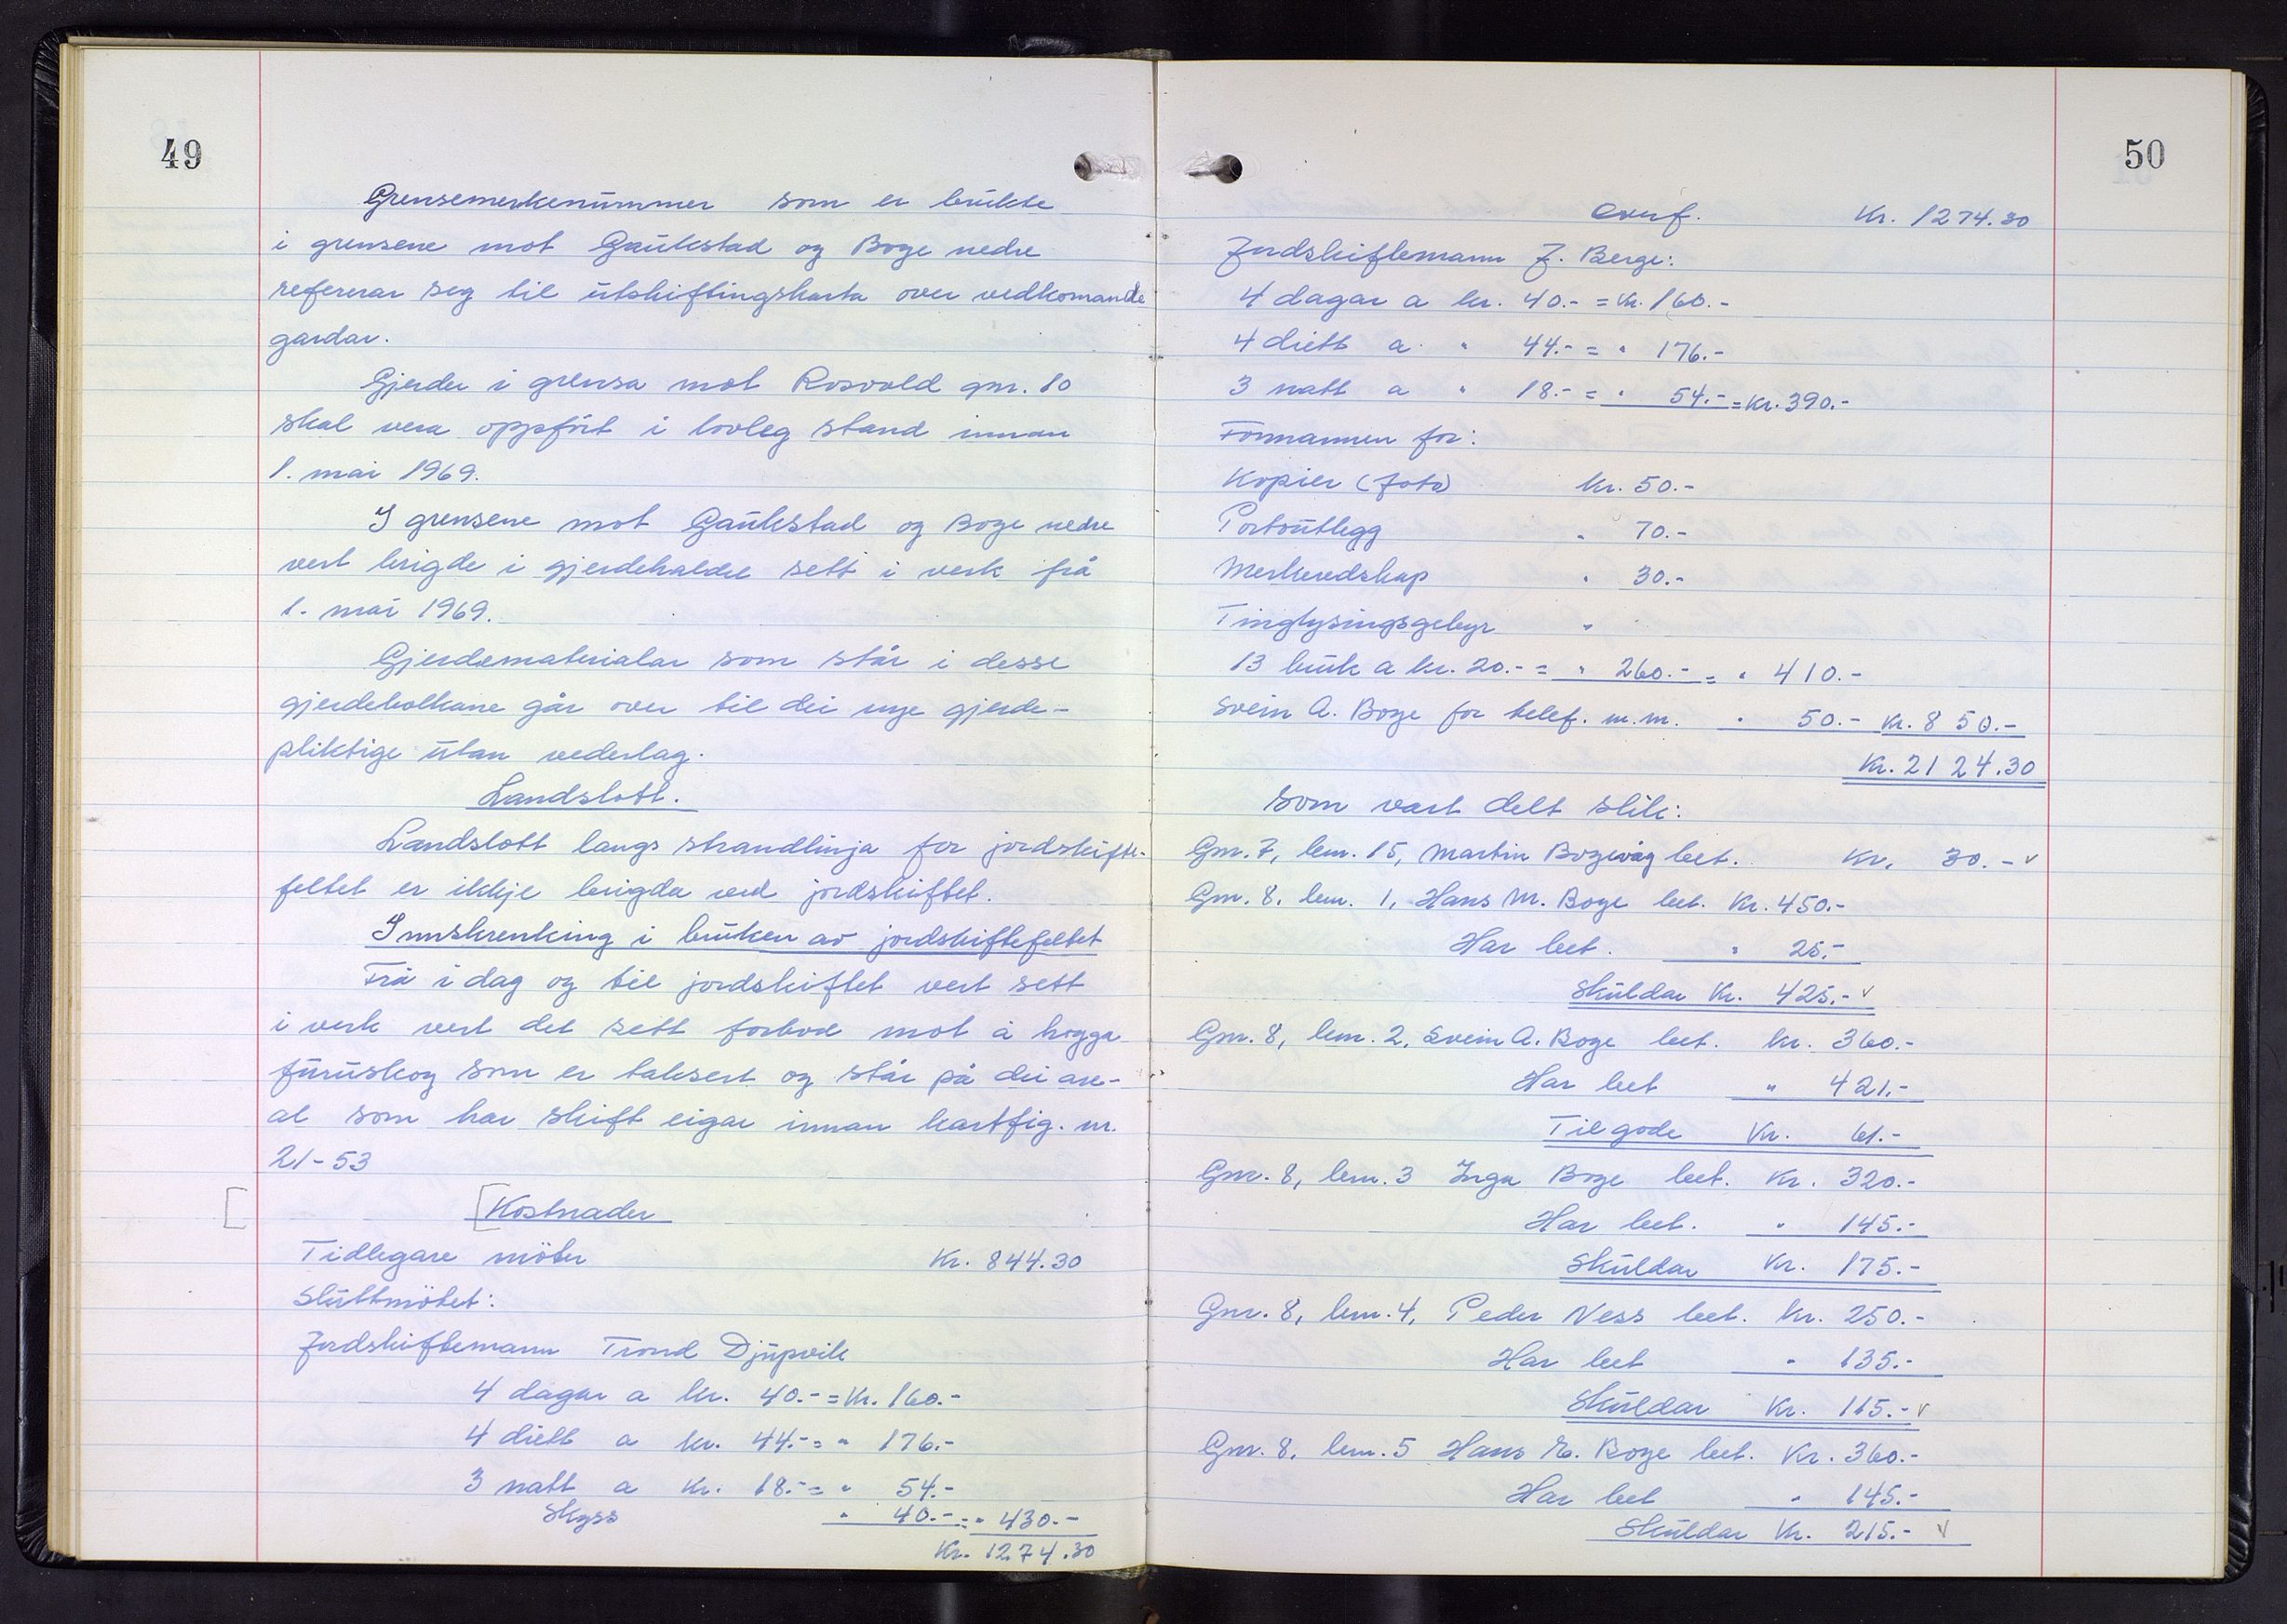 49
Grensemerkenummer som er brukte
i grensene mot Gaukstad og Boge nedre
refererar seg til utskiftingskarta over vedkomande
gardar.
Gjerder i grensa mot Rosvold gnr. 10
skal vera oppført i lovleg stand innan
1. mai 1969.
I grensene mot Gaukstad og Boge nedre
vert brigde i gjerdehaldet sett i verk frå
1. mai 1969.
Gjerdematerialar som står i desse
gjerdebolkane går over til dei nye gjerde-
pliktige utan vederlag.
Landslott.
Landslott langs strandlinja for jordskifte-
feltet er ikkje brigda ved jordskiftet.
Innskrenking i bruken av jordskiftefeltet
Frå i dag og til jordskiftet vert sett
i verk vert det sett forbod mot å hogga
furuskog som er taksert og står på dei are-
al som har skift eigar innan kartfig. nr.
21-53
[ [Kostnader
Tidlegare möter Kr. 844.30
Sluttmötet:
Jordskiftemann Trond Djupvik
4 dagar a kr. 40.- = Kr. 160.-
4 diett a kr. 44.- = " 176.-
3 natt a Kr. 18.- = " 54.-
Skyss " 40.- = " 430.-
Kr. 1274.30
50
Overf. Kr. 1274.30
Jordskiftemann J. Berge:
4 dagar a kr. 40.- = Kr. 160.-
4 diett a " 44.- = " 176.-
3 natt a " 18.- = " 54.- = Kr. 390.-
Formannen for:
Kopier (foto) kr. 50.-
Portoutlegg " 70.-
Merkeredskap " 30.-
Tinglysingsgebyr "
13 bruk a kr. 20.- = " 260.- = " 410.-
Svein A. Boge for telef. m.m. " 50.- Kr. 850.-
Kr. 2124.30
som vart delt slik:
Gnr. 7, bnr. 15, Martin Bogevåg bet. Kr. 30.- v
Gnr. 8, bnr. 1, Hans M. Boge bet. Kr. 450.-
Har bet. " 25.-
Skuldar Kr. 425.- v
Gnr. 8, bnr. 2, Svein A. Boge bet. kr. 360.-
Har bet " 421.-
Tilgode Kr. 61.-
Gnr. 8, bnr. 3 Inga Boge bet. Kr. 320.-
Har bet. " 145.-
Skuldar Kr. 175.-
Gnr. 8, bnr. 4, Peder Ness bet. Kr. 250.-
Har bet " 135.-
Skuldar Kr. 115.- v
Gnr. 8, bnr. 5 Hans E. Boge bet. Kr. 360.-
Har bet " 145.-
Skuldar Kr. 215.- v